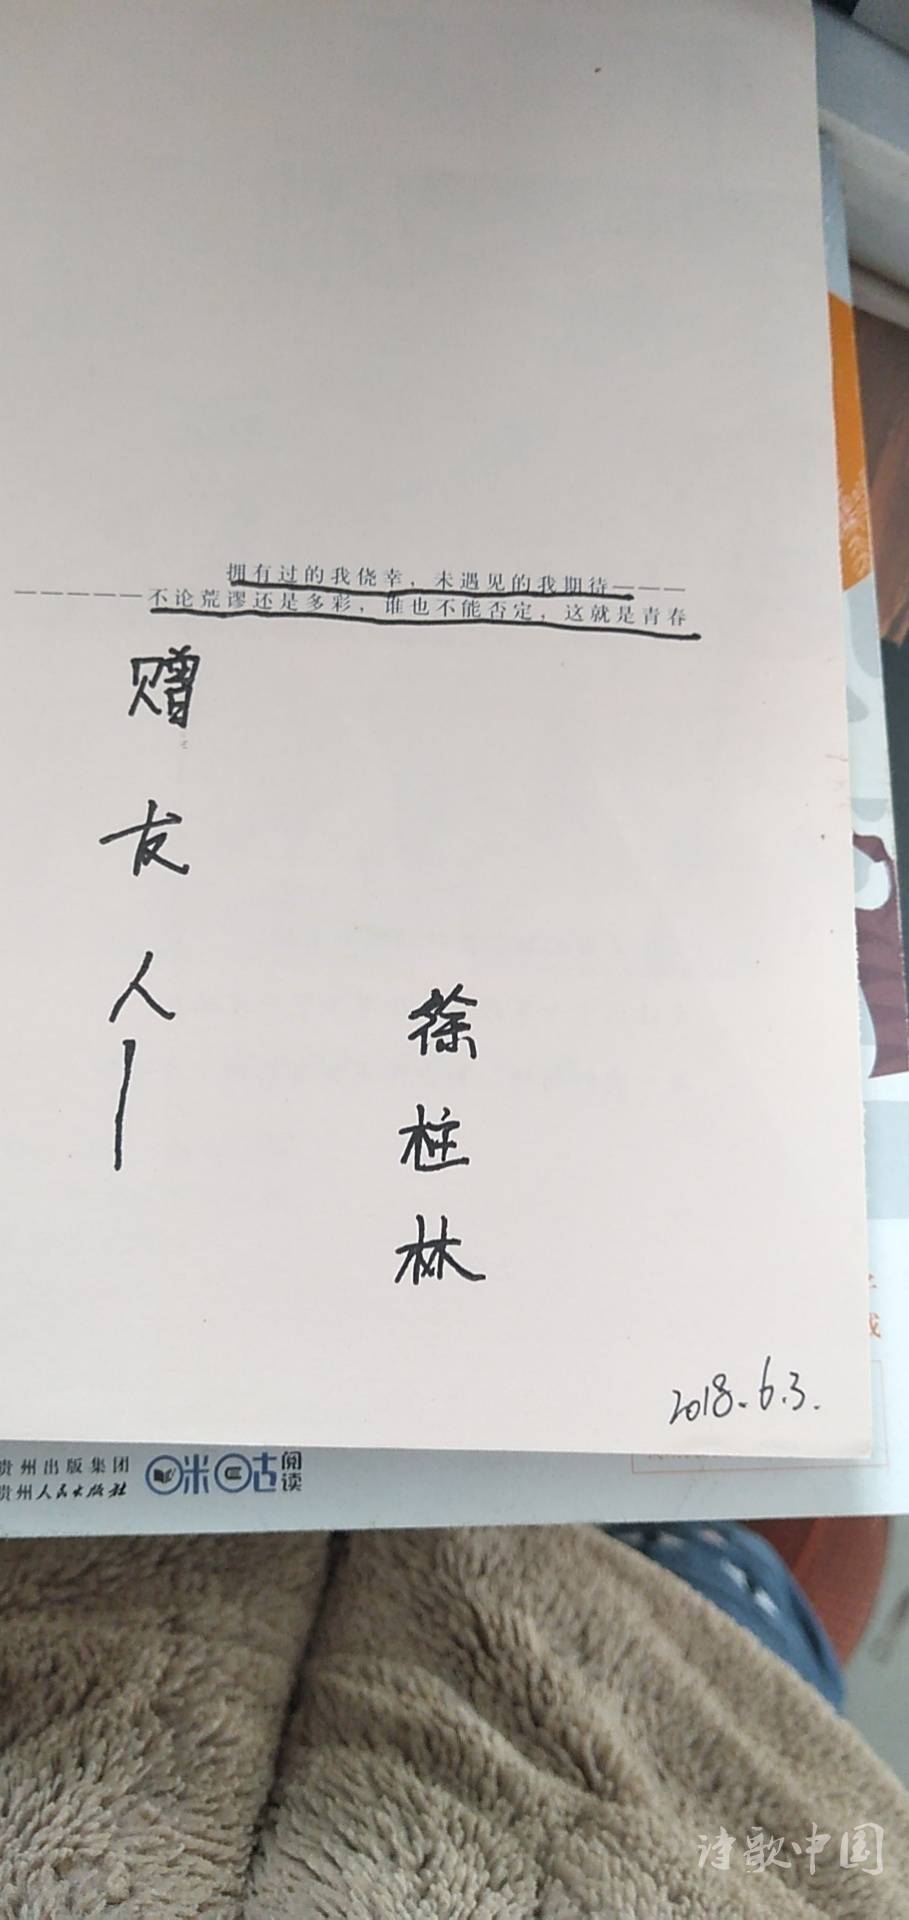 拥有过的我侥幸，未遇见的我期待———
—————不论荒谬还是多彩，谁也不能否定，这就是青春
赠友人—
徐柱林
2018.6.3.
贵州出版集团
贵州人民出版社
咪咕阅读
诗歌中国